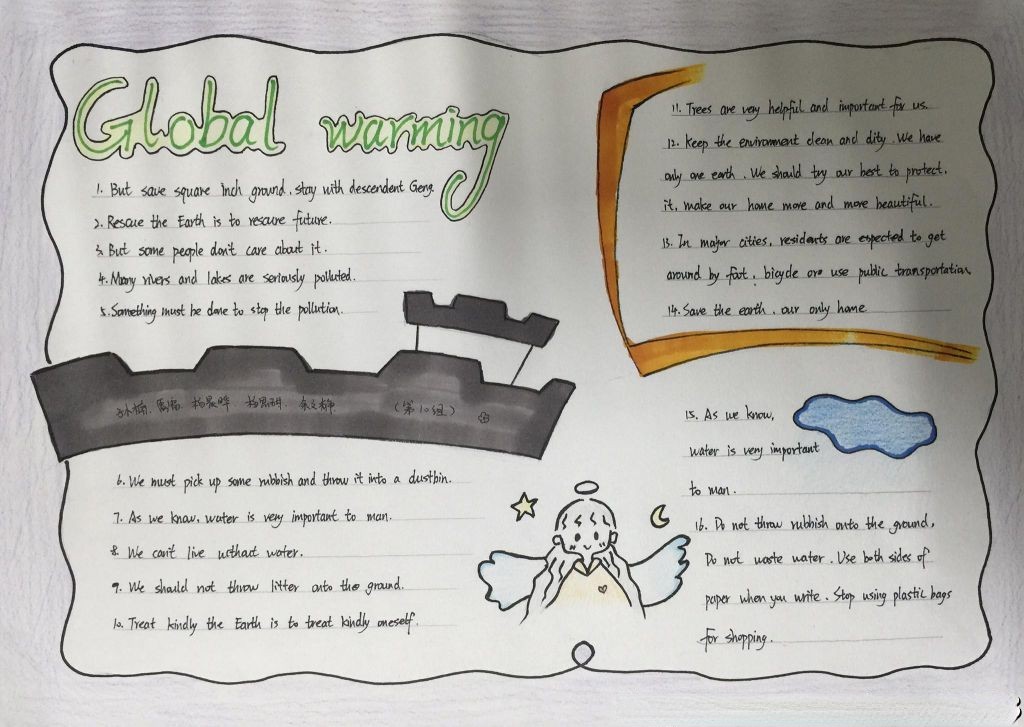 Global warming
1. But save square inch ground, stay with descendent Geng.
2. Rescue the Earth is to rescure future.
3. But some people don't care about it.
4. Many rivers and lakes are seriously polluted.
5. Something must be done to stop the pollution.
(第10组)
6. We must pick up some rubbish and throw it into a dustbin.
7. As we know, water is very important to man.
8. We can't live without water.
9. We should not throw litter onto the ground.
10. Treat kindly the Earth is to treat kindly oneself.
11. Trees are very helpful and important for us.
12. Keep the environment clean and dity. We have
only one earth. We should try our best to protect.
it, make our home more and more beautiful.
13. In major cities, residents are expected to get
around by foot, bicycle or use public transportation
14. Save the earth. our only home
15. As we know,
water is very important
to man.
16. Do not throw rubbish onto the ground,
Do not waste water. Use both sides of
paper when you write. Stop using plastic bags
for shopping.